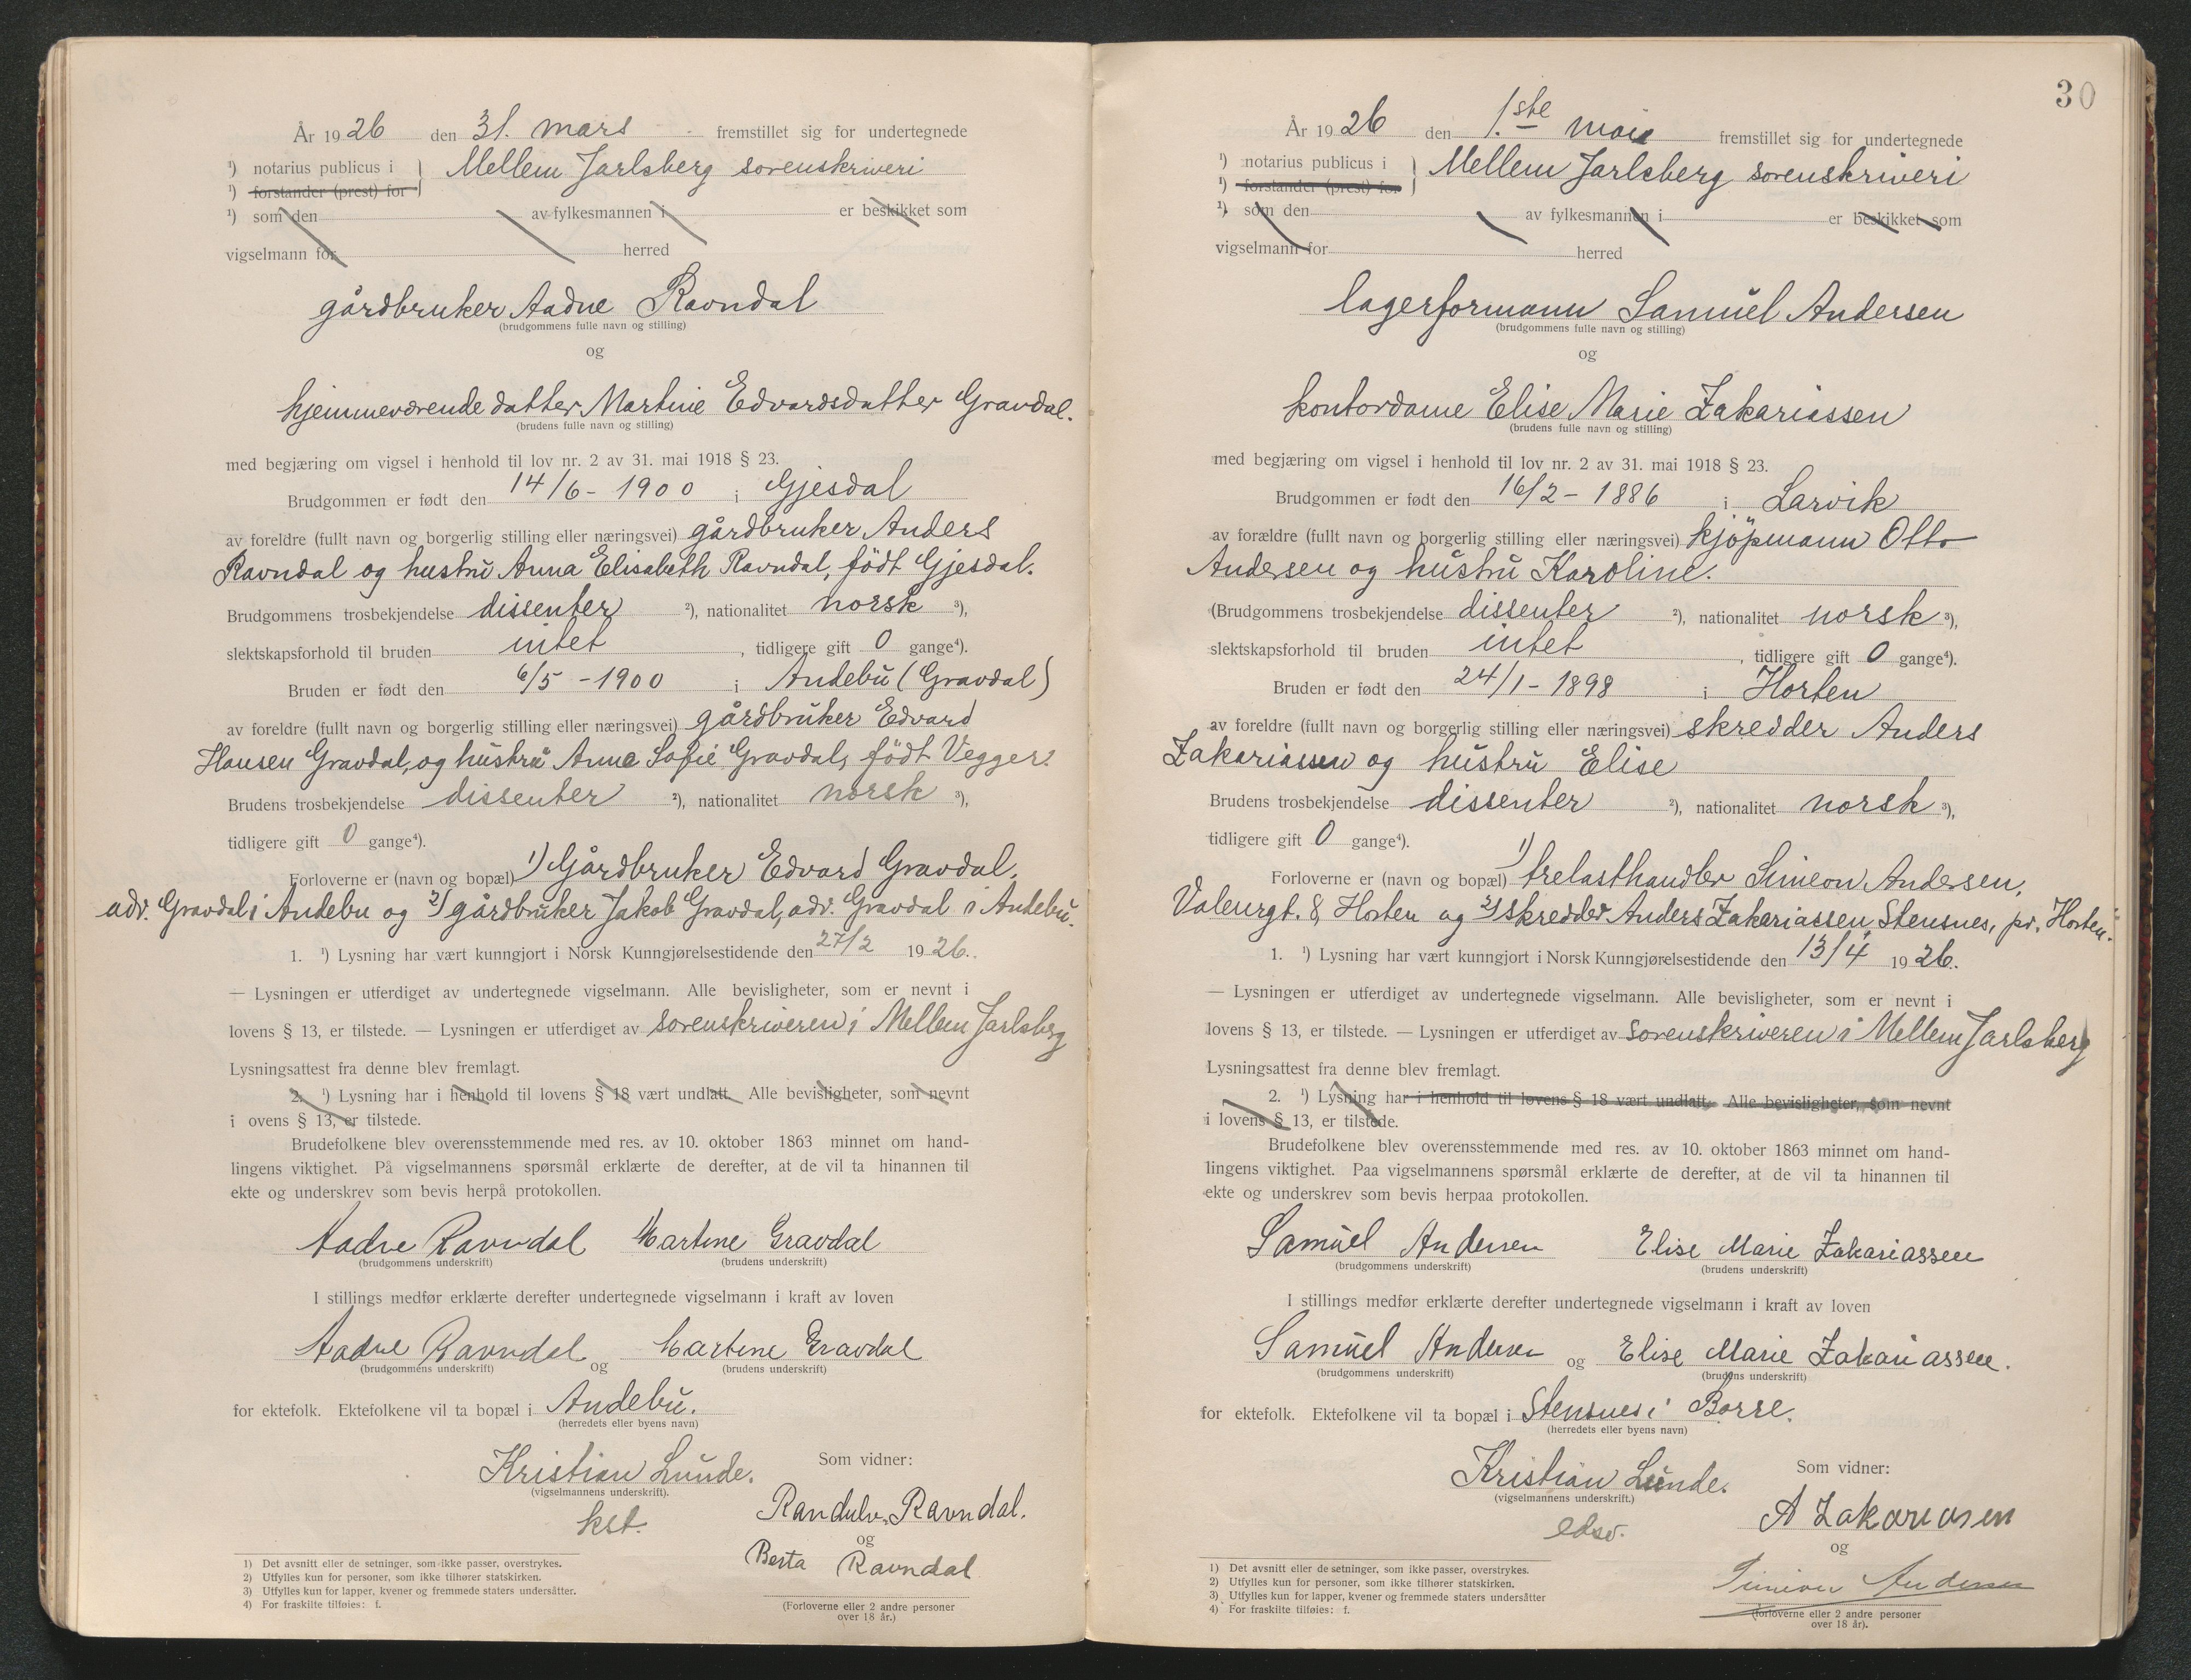 År 1926 den 31. mars fremstillet sig for undertegnede
¹) notarius publicus i } Mellem Jarlsberg sorenskriveri
¹) forstander (prest) for
¹) som den av fylkesmannen i er beskikket som
vigselmann for herred
gårdbruker Aadne Ravndal
(brudgommens fulle navn og stilling)
og
hjemmeværende datter Martine Edvardsdatter Gravdal.
(brudens fulle navn og stilling)
med begjæring om vigsel i henhold til lov nr. 2 av 31. mai 1918 § 23.
Brudgommen er født den 14/6 - 1900 i Gjesdal
av foreldre (fullt navn og borgerlig stilling eller næringsvei) gårdbruker Anders
Ravndal og hustru Anna Elisabeth Ravndal, født Gjesdal.
Brudgommens trosbekjendelse dissenter ²), nationalitet norsk ³),
slektskapsforhold til bruden intet , tidligere gift 0 gange⁴).
Bruden er født den 6/5 - 1900 i Andebu (Gravdal)
av foreldre (fullt navn og borgerlig stilling eller næringsvei) gårdbruker Edvard
Hansen Gravdal, og hustru Anna Sofie Gravdal, født Vegger.
Brudens trosbekjendelse dissenter ²), nationalitet norsk ³),
tidligere gift 0 gange⁴).
Forloverne er (navn og bopæl) 1) Gårdbruker Edvard Gravdal,
adr. Gravdal i Andebu og 2) gårdbruker Jakob Gravdal, adr. Gravdal i Andebu.
1. ¹) Lysning har vært kunngjort i Norsk Kunngjørelsestidende den 27/2 1926.
— Lysningen er utferdiget av undertegnede vigselmann. Alle bevisligheter, som er nevnt i
lovens § 13, er tilstede. — Lysningen er utferdiget av sorenskriveren i Mellem Jarlsberg
Lysningsattest fra denne blev fremlagt.
2. ¹) Lysning har i henhold til lovens § 18 vært undlatt. Alle bevisligheter, som nevnt
i ovens § 13, er tilstede.
Brudefolkene blev overensstemmende med res. av 10. oktober 1863 minnet om hand-
lingens viktighet. På vigselmannens spørsmål erklærte de derefter, at de vil ta hinannen til
ekte og underskrev som bevis herpå protokollen.
Aadne Ravndal Martine Gravdal
(brudgommens underskrift) (brudens underskrift)
I stillings medfør erklærte derefter undertegnede vigselmann i kraft av loven
Aadne Ravndal og Martine Gravdal
(brudgommens underskrift) (brudens underskrift)
for ektefolk. Ektefolkene vil ta bopæl i Andebu.
(herredets eller byens navn)
Kristian Lunde. Som vidner:
(vigselmannens underskrift).
kst. Randulv Ravndal.
og
Berta Ravndal
(Forloverne eller 2 andre personer
over 18 år.)
1) Det avsnitt eller de setninger, som ikke passer, overstrykes.
2) Utfylles kun for personer, som ikke tilhører statskirken.
3) Utfylles kun for lapper, kvener og fremmede staters undersåtter.
4) For fraskilte tilføies: f.
30
År 1926 den 1.ste mai fremstillet sig for undertegnede
¹) notarius publicus i } Mellem Jarlsberg sorenskriveri
¹) forstander (prest) for
¹) som den av fylkesmannen i er beskikket som
vigselmann for herred
lagerformann Samuel Andersen
(brudgommens fulle navn og stilling)
og
kontordame Elise Marie Zakariassen
(brudens fulle navn og stilling)
med begjæring om vigsel i henhold til lov nr. 2 av 31. mai 1918 § 23.
Brudgommen er født den 16/2 - 1886 i Larvik
av forældre (fullt navn og borgerlig stilling eller næringsvei) kjöpmann Otto
Andersen og hustru Karoline.
(Brudgommens trosbekjendelse dissenter ²), nationalitet norsk ³),
slektskapsforhold til bruden intet , tidligere gift 0 gange⁴).
Bruden er født den 24/1 - 1898 i Horten
av foreldre (fullt navn og borgerlig stilling eller næringsvei) skredder Anders
Zakariassen og hustru Elise
Brudens trosbekjendelse dissenter ²), nationalitet norsk ³),
tidligere gift 0 gange⁴).
Forloverne er (navn og bopæl) 1) trelasthandler Simeon Andersen,
Valeurgt. 8, Horten og 2) skredder Anders Zakariassen Stensnes, pr. Horten.
1. ¹) Lysning har vært kunngjort i Norsk Kunngjørelsestidende den 13/4 1926.
— Lysningen er utferdiget av undertegnede vigselmann. Alle bevisligheter, som er nevnt i
lovens § 13, er tilstede. — Lysningen er utferdiget av sorenskriveren i Mellem Jarlsberg
Lysningsattest fra denne blev fremlagt.
2. ¹) Lysning har i henhold til lovens § 18 vært undlatt. Alle bevisligheter, som nevnt
i lovens § 13, er tilstede.
Brudefolkene blev overensstemmende med res. av 10. oktober 1863 minnet om hand-
lingens viktighet. Paa vigselmannens spørsmål erklærte de derefter, at de vil ta hinannen til
ekte og underskrev som bevis herpaa protokollen.
Samuel Andersen Elise Marie Zakariassen
(brudgommens underskrift) (brudens underskrift)
I stillings medfør erklærte derefter undertegnede vigselmann i kraft av loven
Samuel Andersen og Elise Marie Zakariassen.
(brudgommens underskrift) (brudens underskrift)
for ektefolk. Ektefolkene vil ta bopæl i Stensnes i Borre.
(herredets eller byens navn)
Kristian Lunde. Som vidner:
(vigselmannens underskrift.)
edsv. A Zakariasen
og
Simion Andersen
(forloverne eller 2 andre personer
over 18 år).
1) Det avsnitt eller de setninger, som ikke passer, overstrykes.
2) Utfylles kun for personer, som ikke tilhører statskirken.
3) Utfylles kun for lapper, kvener og fremmede staters undersåtter
4) For fraskilte tilføies: f.